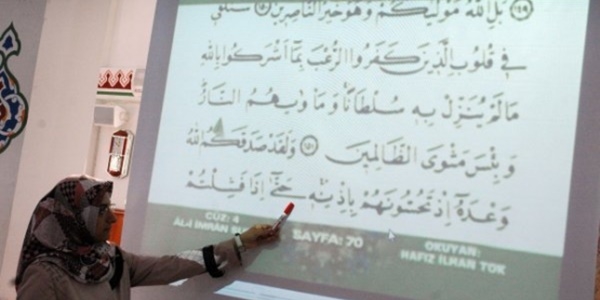 ﴿١٤٩﴾ بَلِ اللهُ مَوْلٰيكُمْ وَهُوَ خَيْرُ النَّاصِرٖينَ ﴿١٥٠﴾ سَنُلْقٖي
فٖي قُلُوبِ الَّذٖينَ كَفَرُوا الرُّعْبَ بِمَٓا اَشْرَكُوا بِاللهِ
مَا لَمْ يُنَزِّلْ بِهٖ سُلْطَانًاۚ وَمَأْوٰيهُمُ النَّارُۜ
وَبِئْسَ مَثْوَى الظَّالِمٖينَ ﴿١٥١﴾ وَلَقَدْ صَدَقَكُمُ اللهُ
وَعْدَهُٓ اِذْ تَحُسُّونَهُمْ بِاِذْنِهٖۚ حَتّٰٓى اِذَا فَشِلْتُمْ
CÜZ: 4
ÂL-İ İMRÂN
SAYFA: 70
OKUYAN:
HAFIZ İLHAN TOK